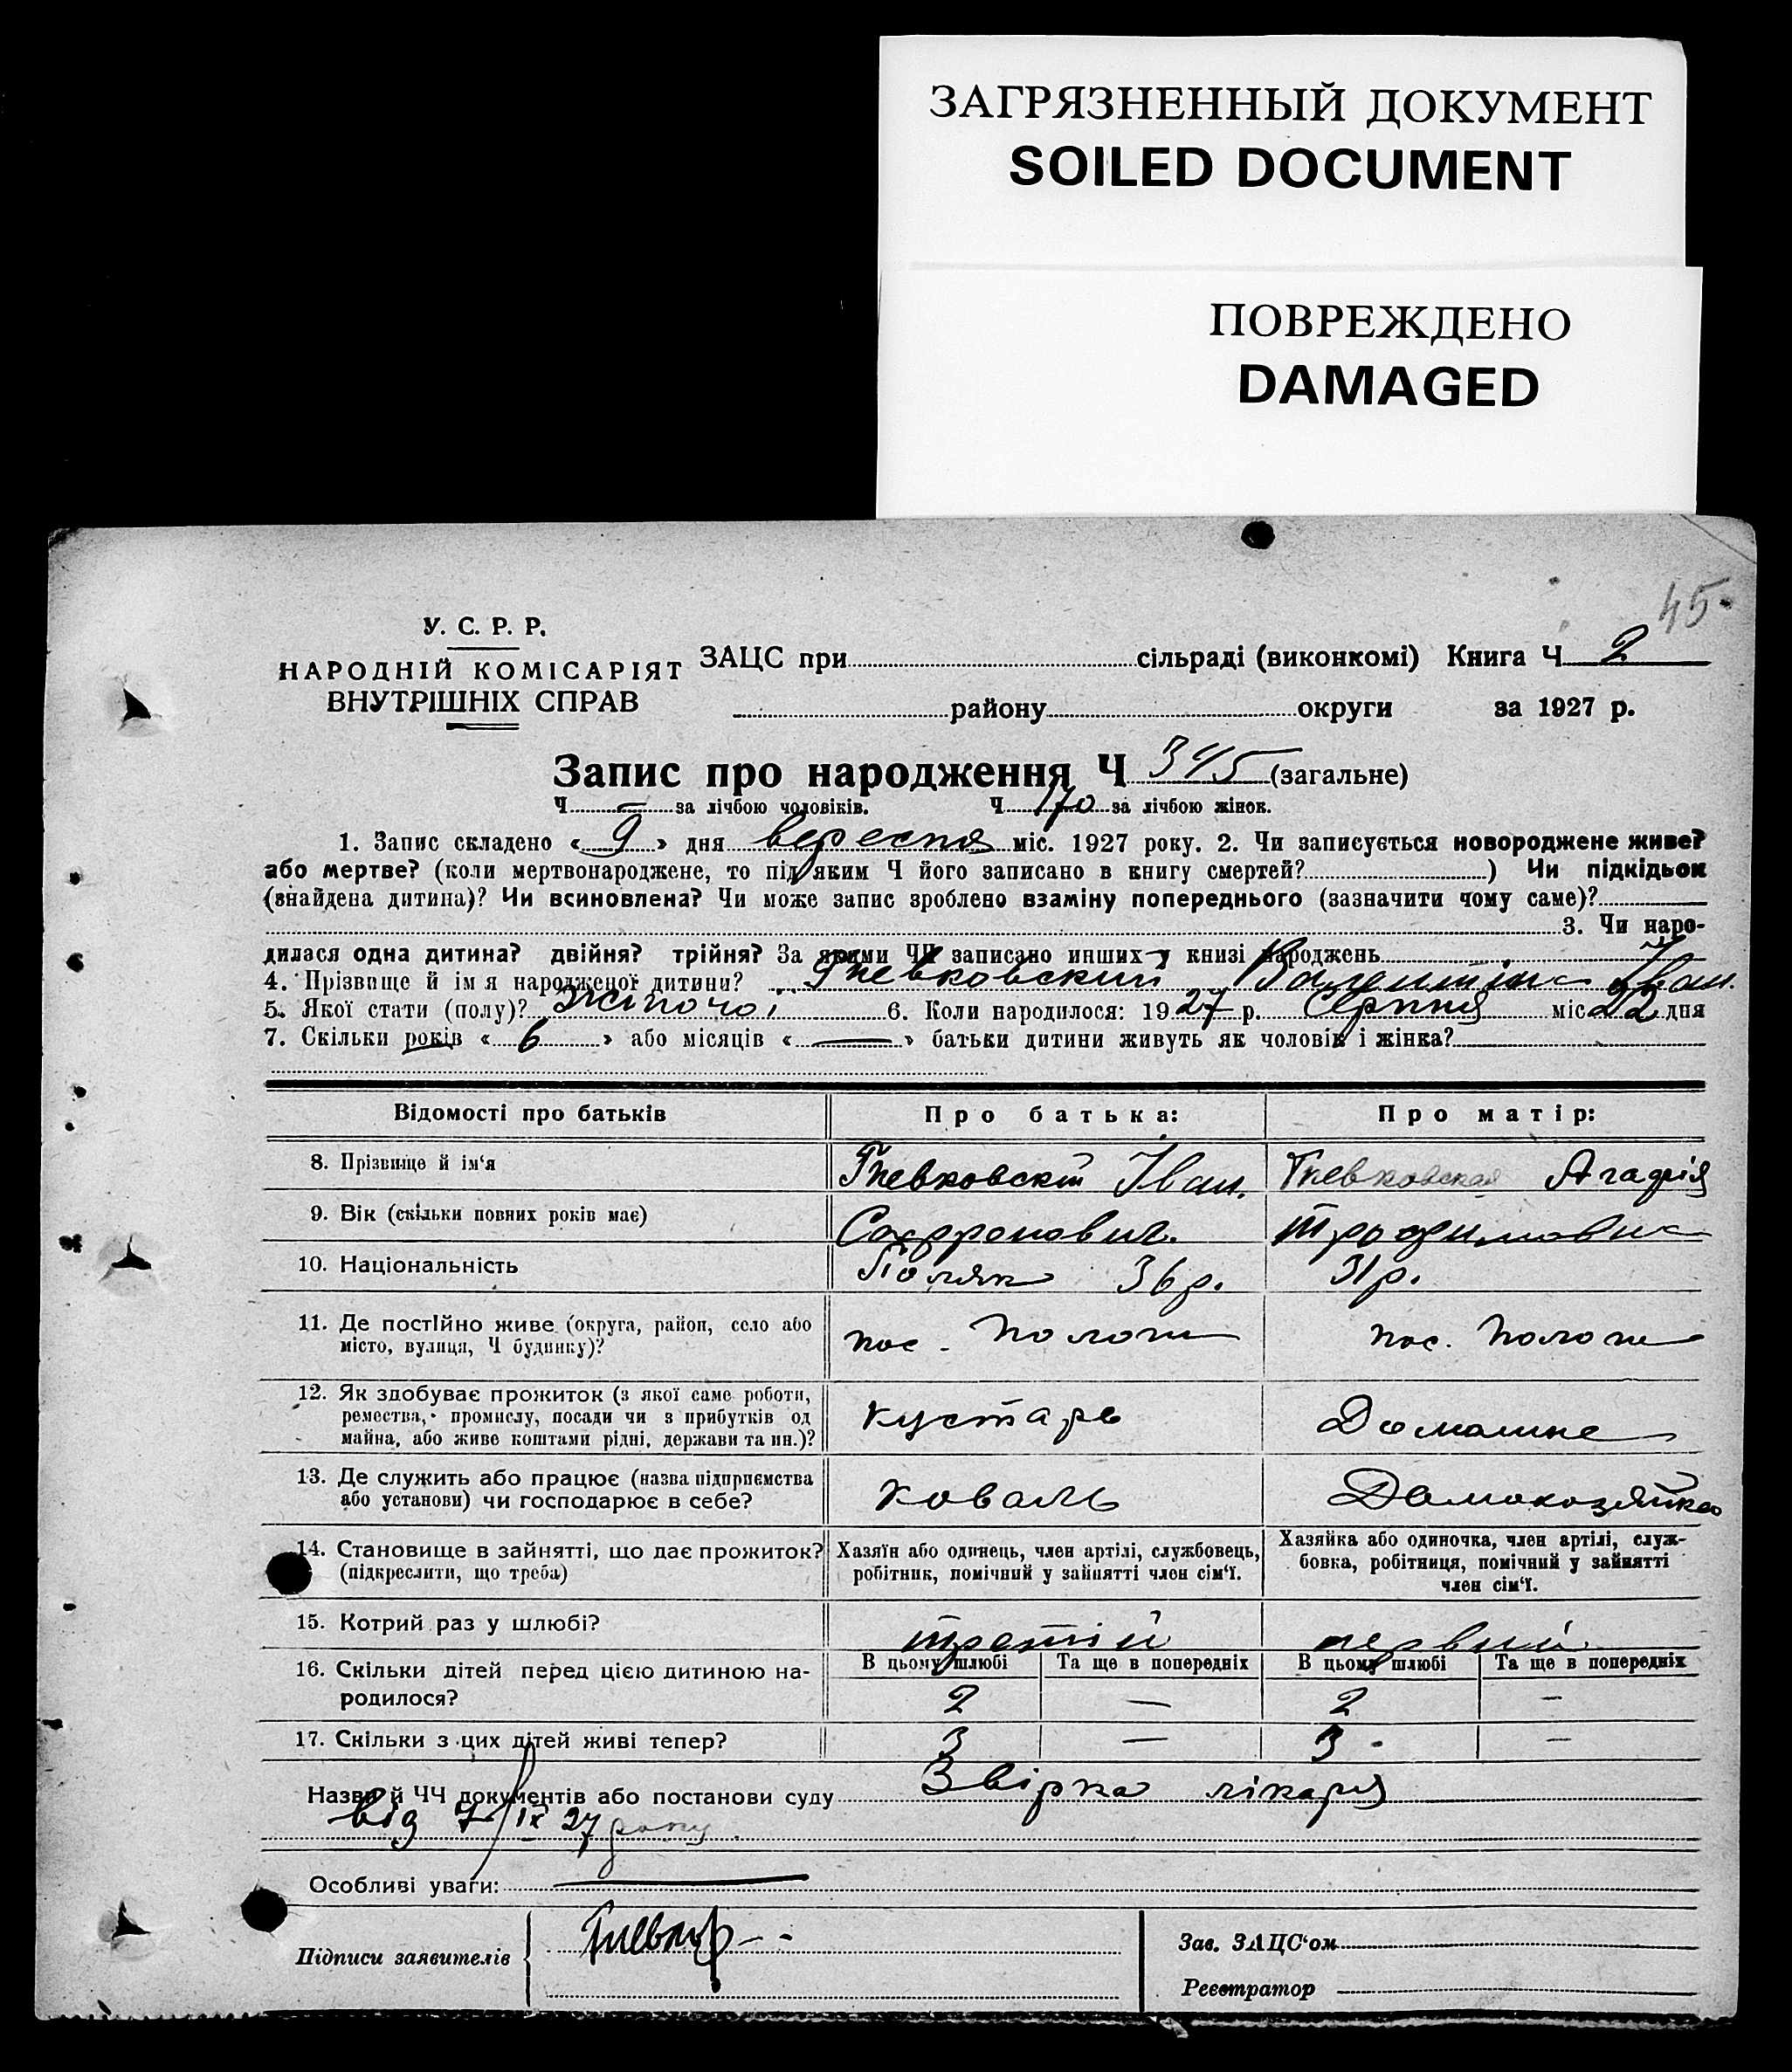 ЗАГРЯЗНЕННЫЙ ДОКУМЕНТ
SOILED DOCUMENT
ПОВРЕЖДЕНО
DAMAGED
45
У. С. Р. Р.
НАРОДНІЙ КОМІСАРІЯТ
ВНУТРІШНІХ СПРАВ
ЗАЦС при сільраді (виконкомі) Книга Ч 2
району округи за 1927 р.
Запис про народження Ч 345 (загальне)
Ч – за лічбою чоловіків. Ч 170 за лічбою жінок.
1. Запис складено « 9 » дня вересня міс. 1927 року. 2. Чи записується новороджене живе?
або мертве? (коли мертвонароджене, то під яким Ч його записано в книгу смертей? ) Чи підкідьок
(знайдена дитина)? Чи всиновлена? Чи може запис зроблено взаміну попереднього (зазначити чому саме)?
3. Чи наро-
дилася одна дитина? двійня? трійня? За якими ЧЧ записано инших у книзі народжень
4. Прізвище й ім я народженої дитини? Гневковский Валентина Іван.
5. Якої стати (полу)? жіночої 6. Коли народилося: 1927 р. Серпня міс 22 дня
7. Скільки років « 6 » або місяців « — » батьки дитини живуть як чоловік і жінка?
Відомості про батьків Про батька: Про матір:
8. Прізвище й ім'я Гневковскій Іван. Гневковская Агафія
9. Вік (скільки повних років має) Софронович. Трофимовна
10. Національність Поляк 36 р. 31 р.
11. Де постійно живе (округа, район, село або
місто, вулиця, Ч будинку)? пос. Пологи пос. Пологи
12. Як здобуває прожиток (з якої саме роботи,
ремества, промислу, посади чи з прибутків од
майна, або живе коштами рідні, держави та ин.)? кустарь Домашне
13. Де служить або працює (назва підприємства
або установи) чи господарює в себе? коваль Домохозяйка
14. Становище в зайнятті, що дає прожиток?
(підкреслити, що треба)
Хазяїн або одинець, член артілі, службовець,
робітник, помічний у зайнятті член сім'ї.
Хазяйка або одиночка, член артілі, служ-
бовка, робітниця, помічний у зайнятті
член сім'ї.
15. Котрий раз у шлюбі? третій первий
16. Скільки дітей перед цією дитиною на-
родилося?
В цьому шлюбі Та ще в попередніх В цьому шлюбі Та ще в попередніх
2 — 2 –
17. Скільки з цих дітей живі тепер? 3 — 3 –
Назви й ЧЧ документів або постанови суду Звірка лікаря
від 7/IX 27 року
Особливі уваги:
Підписи заявителів
Зав. ЗАЦС'ом
Реєстратор